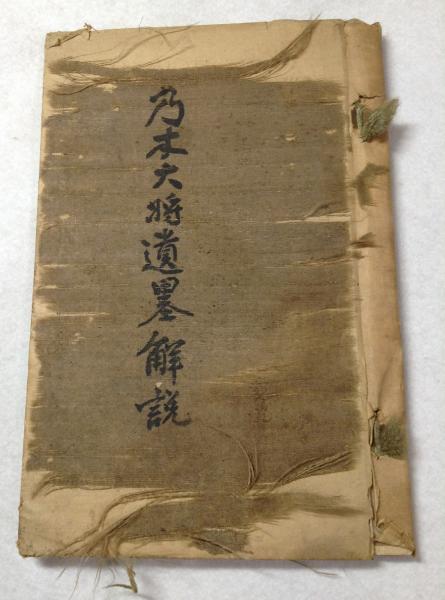 乃木大将遺墨解説